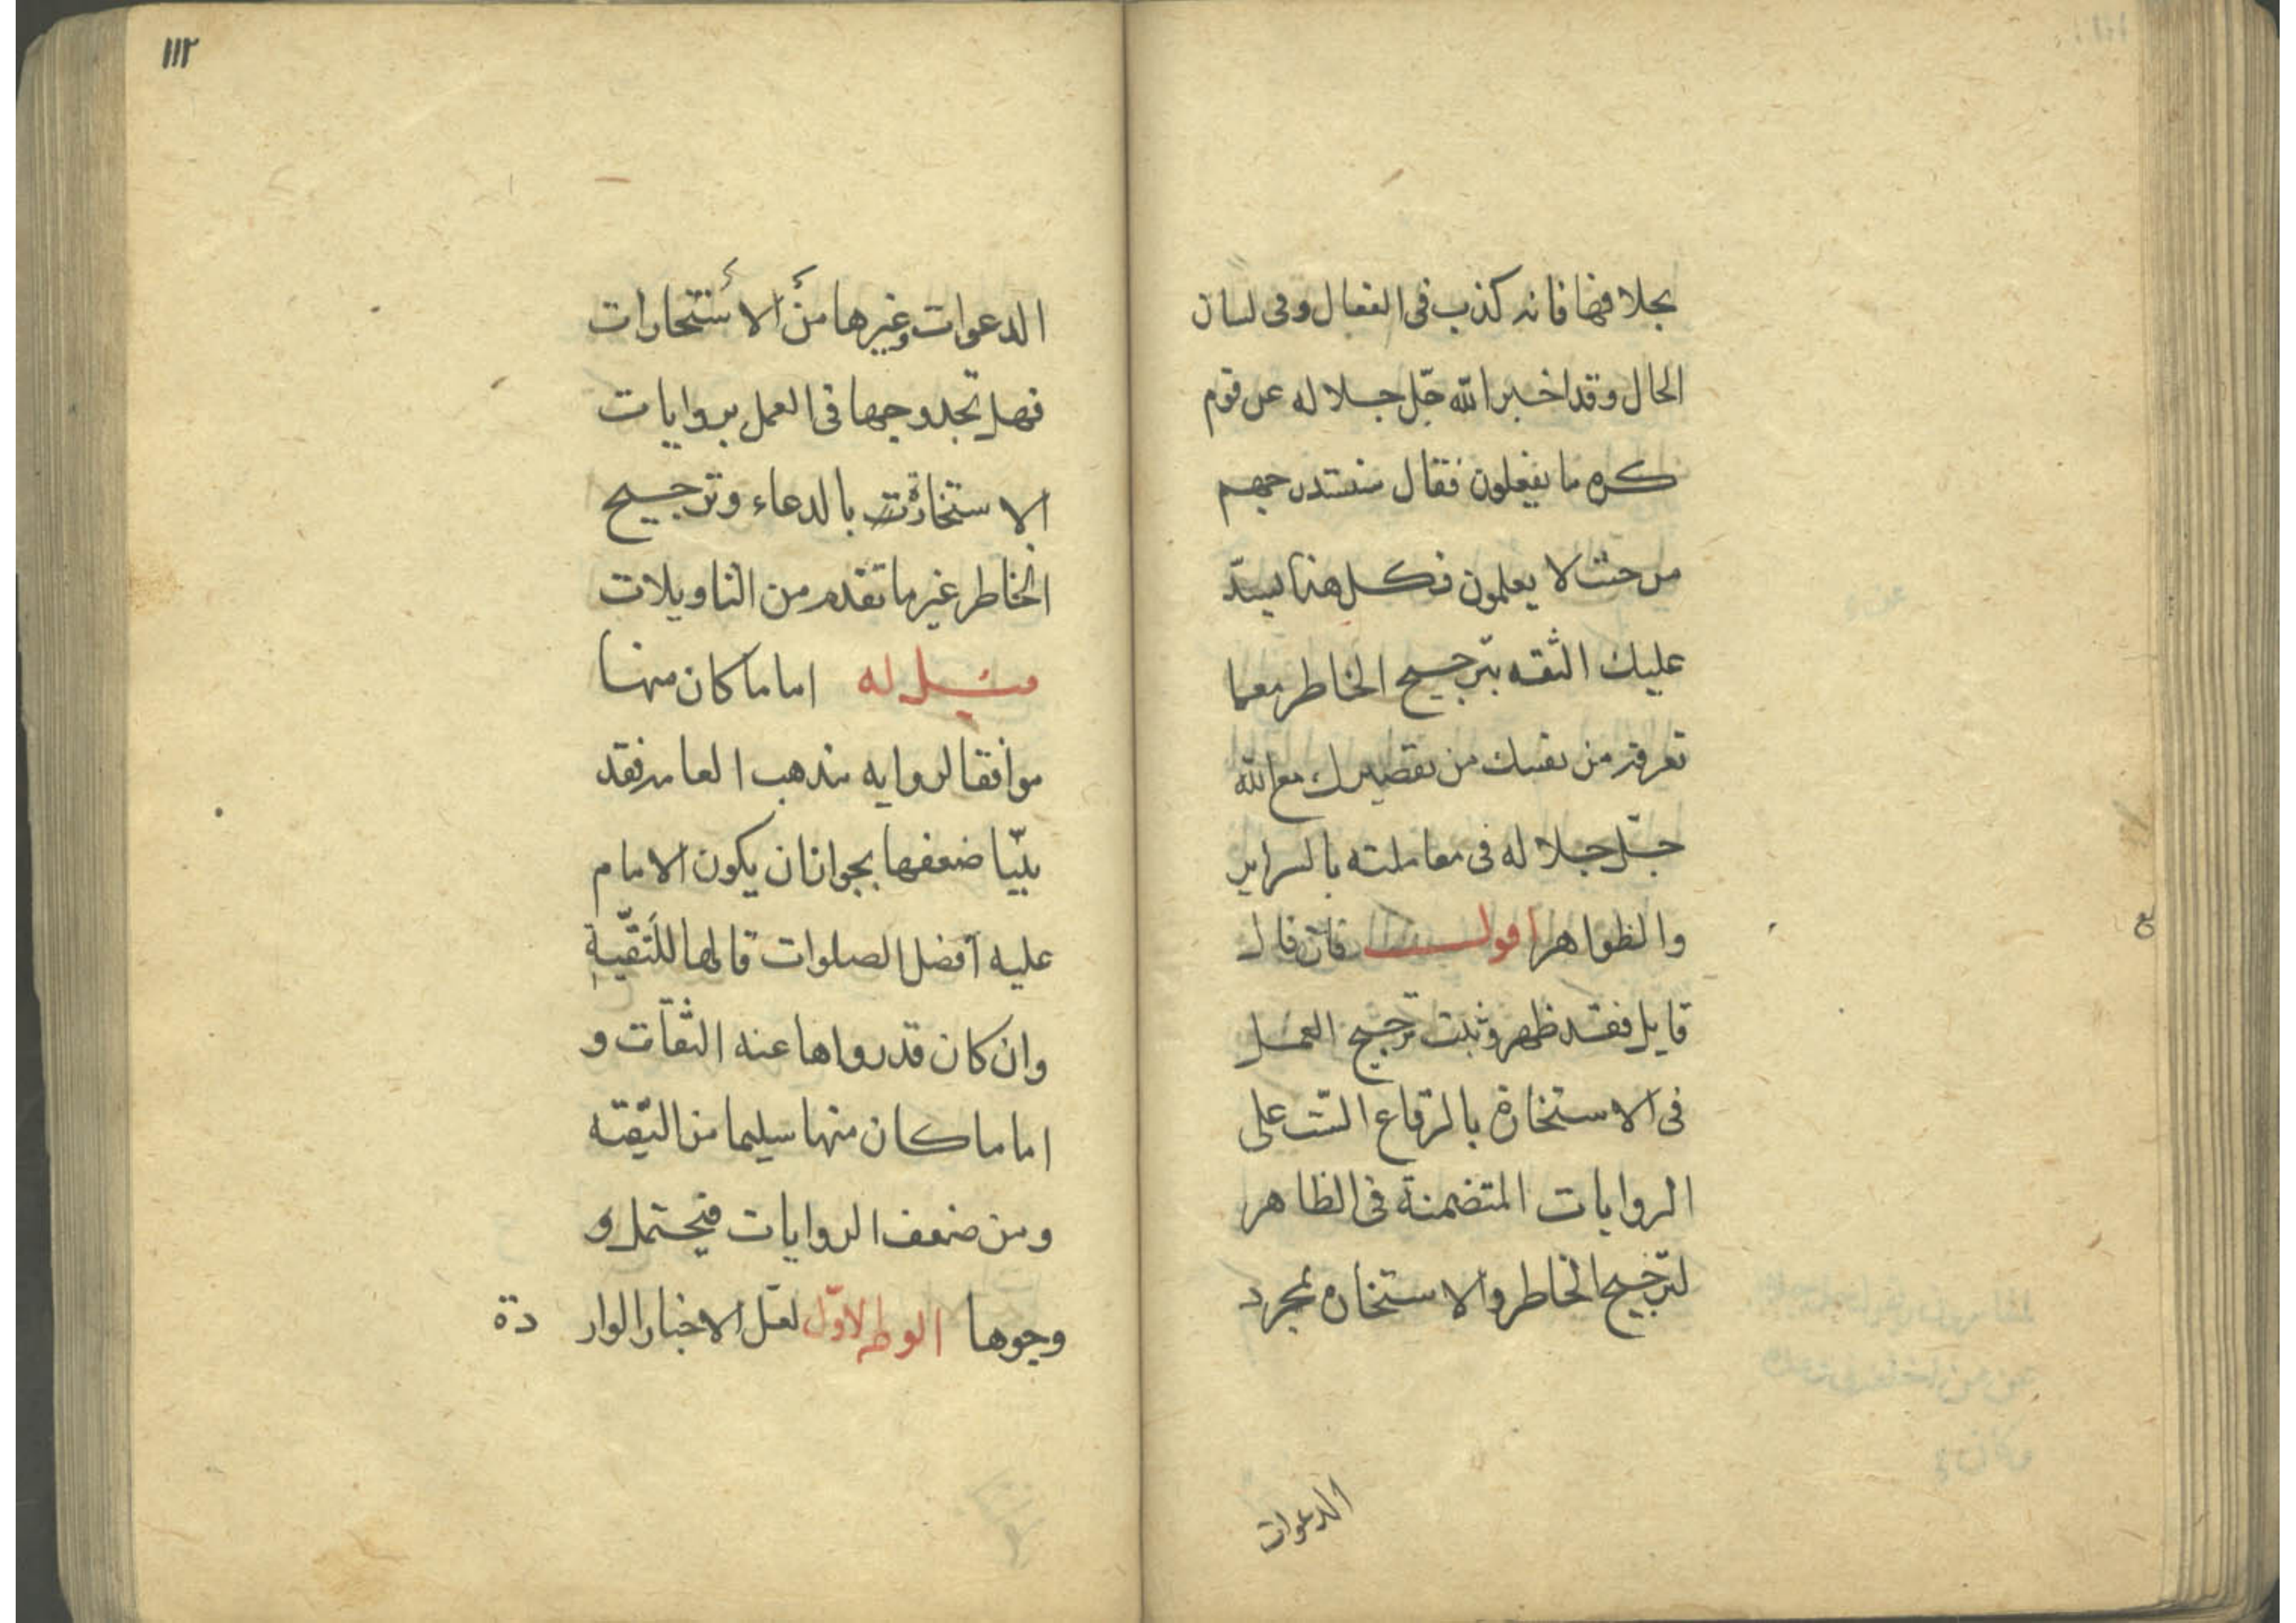 بخلافها فانه كذب فى الفعال وفى لسان
الحال وقد اخبر الله جّل جلاله عن قوم
كره ما يفعلون فقال سنستدرجهم
من حيث لا يعلمون فكل هذا يسدّ
عليك الثقه بترجيح الخاطر معما
تعرفه من نفسك من تقصيرك مع الله
جّل جلاله فى معاملته بالسراير
والظواهر اقول فان قال
قايل فقد ظهر وثبت ترجيح العمل
فى الاستخارة بالرقاع الست على
الروايات المتضمنة فى الظاهر
لترجيح الخاطر والاستخاره بمجرد
الدعوات
١١٢
الدعوات وغيرها من الاستخارات
فهل تجد وجها فى العمل بروايات
الاستخارة بالدعاء وترجيح
الخاطر غير ما تقدم من التاويلات
قيل له اما ما كان منها
موافقا لروايه مذهب العامه فقد
بيّنا ضعفها بجواز ان يكون الامام
عليه افضل الصلوات قالها للتقّية
وان كان قد رواها عنه الثقات و
اما ما كان منها سليما من التقيّه
ومن ضعف الروايات فيحتمل و
وجوها الاوّل لعل الاخبار الوار دة